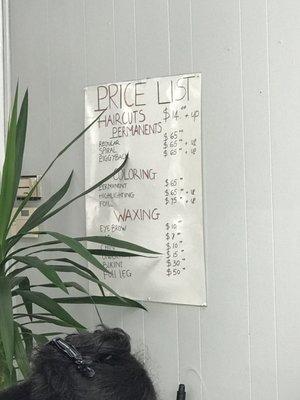 PRICE LIST
HAIRCUTS $14.00 + up
PERMANENTS
REGULAR $65.00
SPIRAL $65.00 + up
PIGGYBACK $65.00 + up
COLORING
PERMANENT $65.00
HIGHLIGHTING $65.00 + up
FOILS $75.00 + up
WAXING
EYE BROW $10.00
$7.00
CHIN $10.00
$15.00
BIKINI $30.00
FULL LEG $50.00